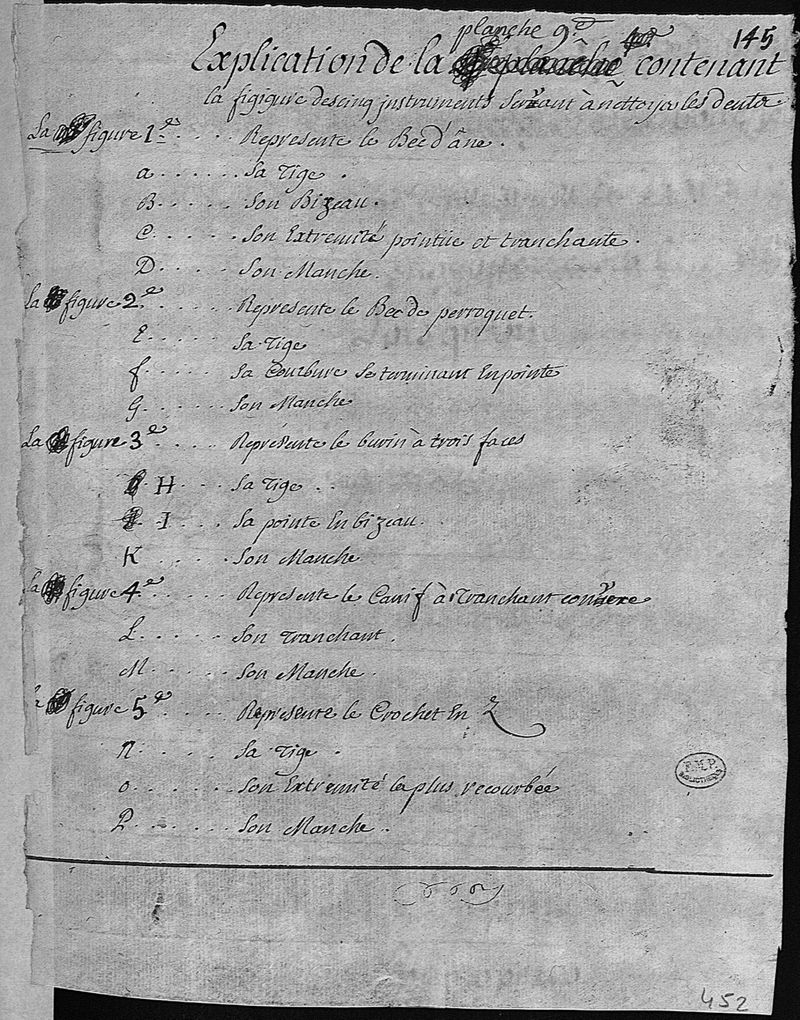 145
planche 9.e
Explication de la contenant
la figigure des cinq instruments servant à nettoyer les dents
La figure 1.e ..... Represente le Bec d'âne.
a ...... Sa Tige.
B ..... Son Bizeau.
C ..... Son Extremité pointüe et tranchante.
D ..... Son Manche.
La figure 2.e ..... Represente le Bec de perroquet.
E ..... Sa Tige
f ..... Sa Courbure se terminant En pointe
G ..... Son Manche
La figure 3.e ..... Représente le burin à trois faces
H ... Sa Tige..
I ... Sa pointe En bizeau.
K ..... Son Manche
La figure 4.e ..... Represente le Canif à Tranchant convexe
L ..... Son Tranchant.
M ..... Son Manche.
La figure 5.e ..... Represente le Crochet En Z
n ..... Sa Tige.
o ..... Son Extremité la plus recourbée
P ..... Son Manche.
F.M.P.
BIBLIOTHEQUE
452